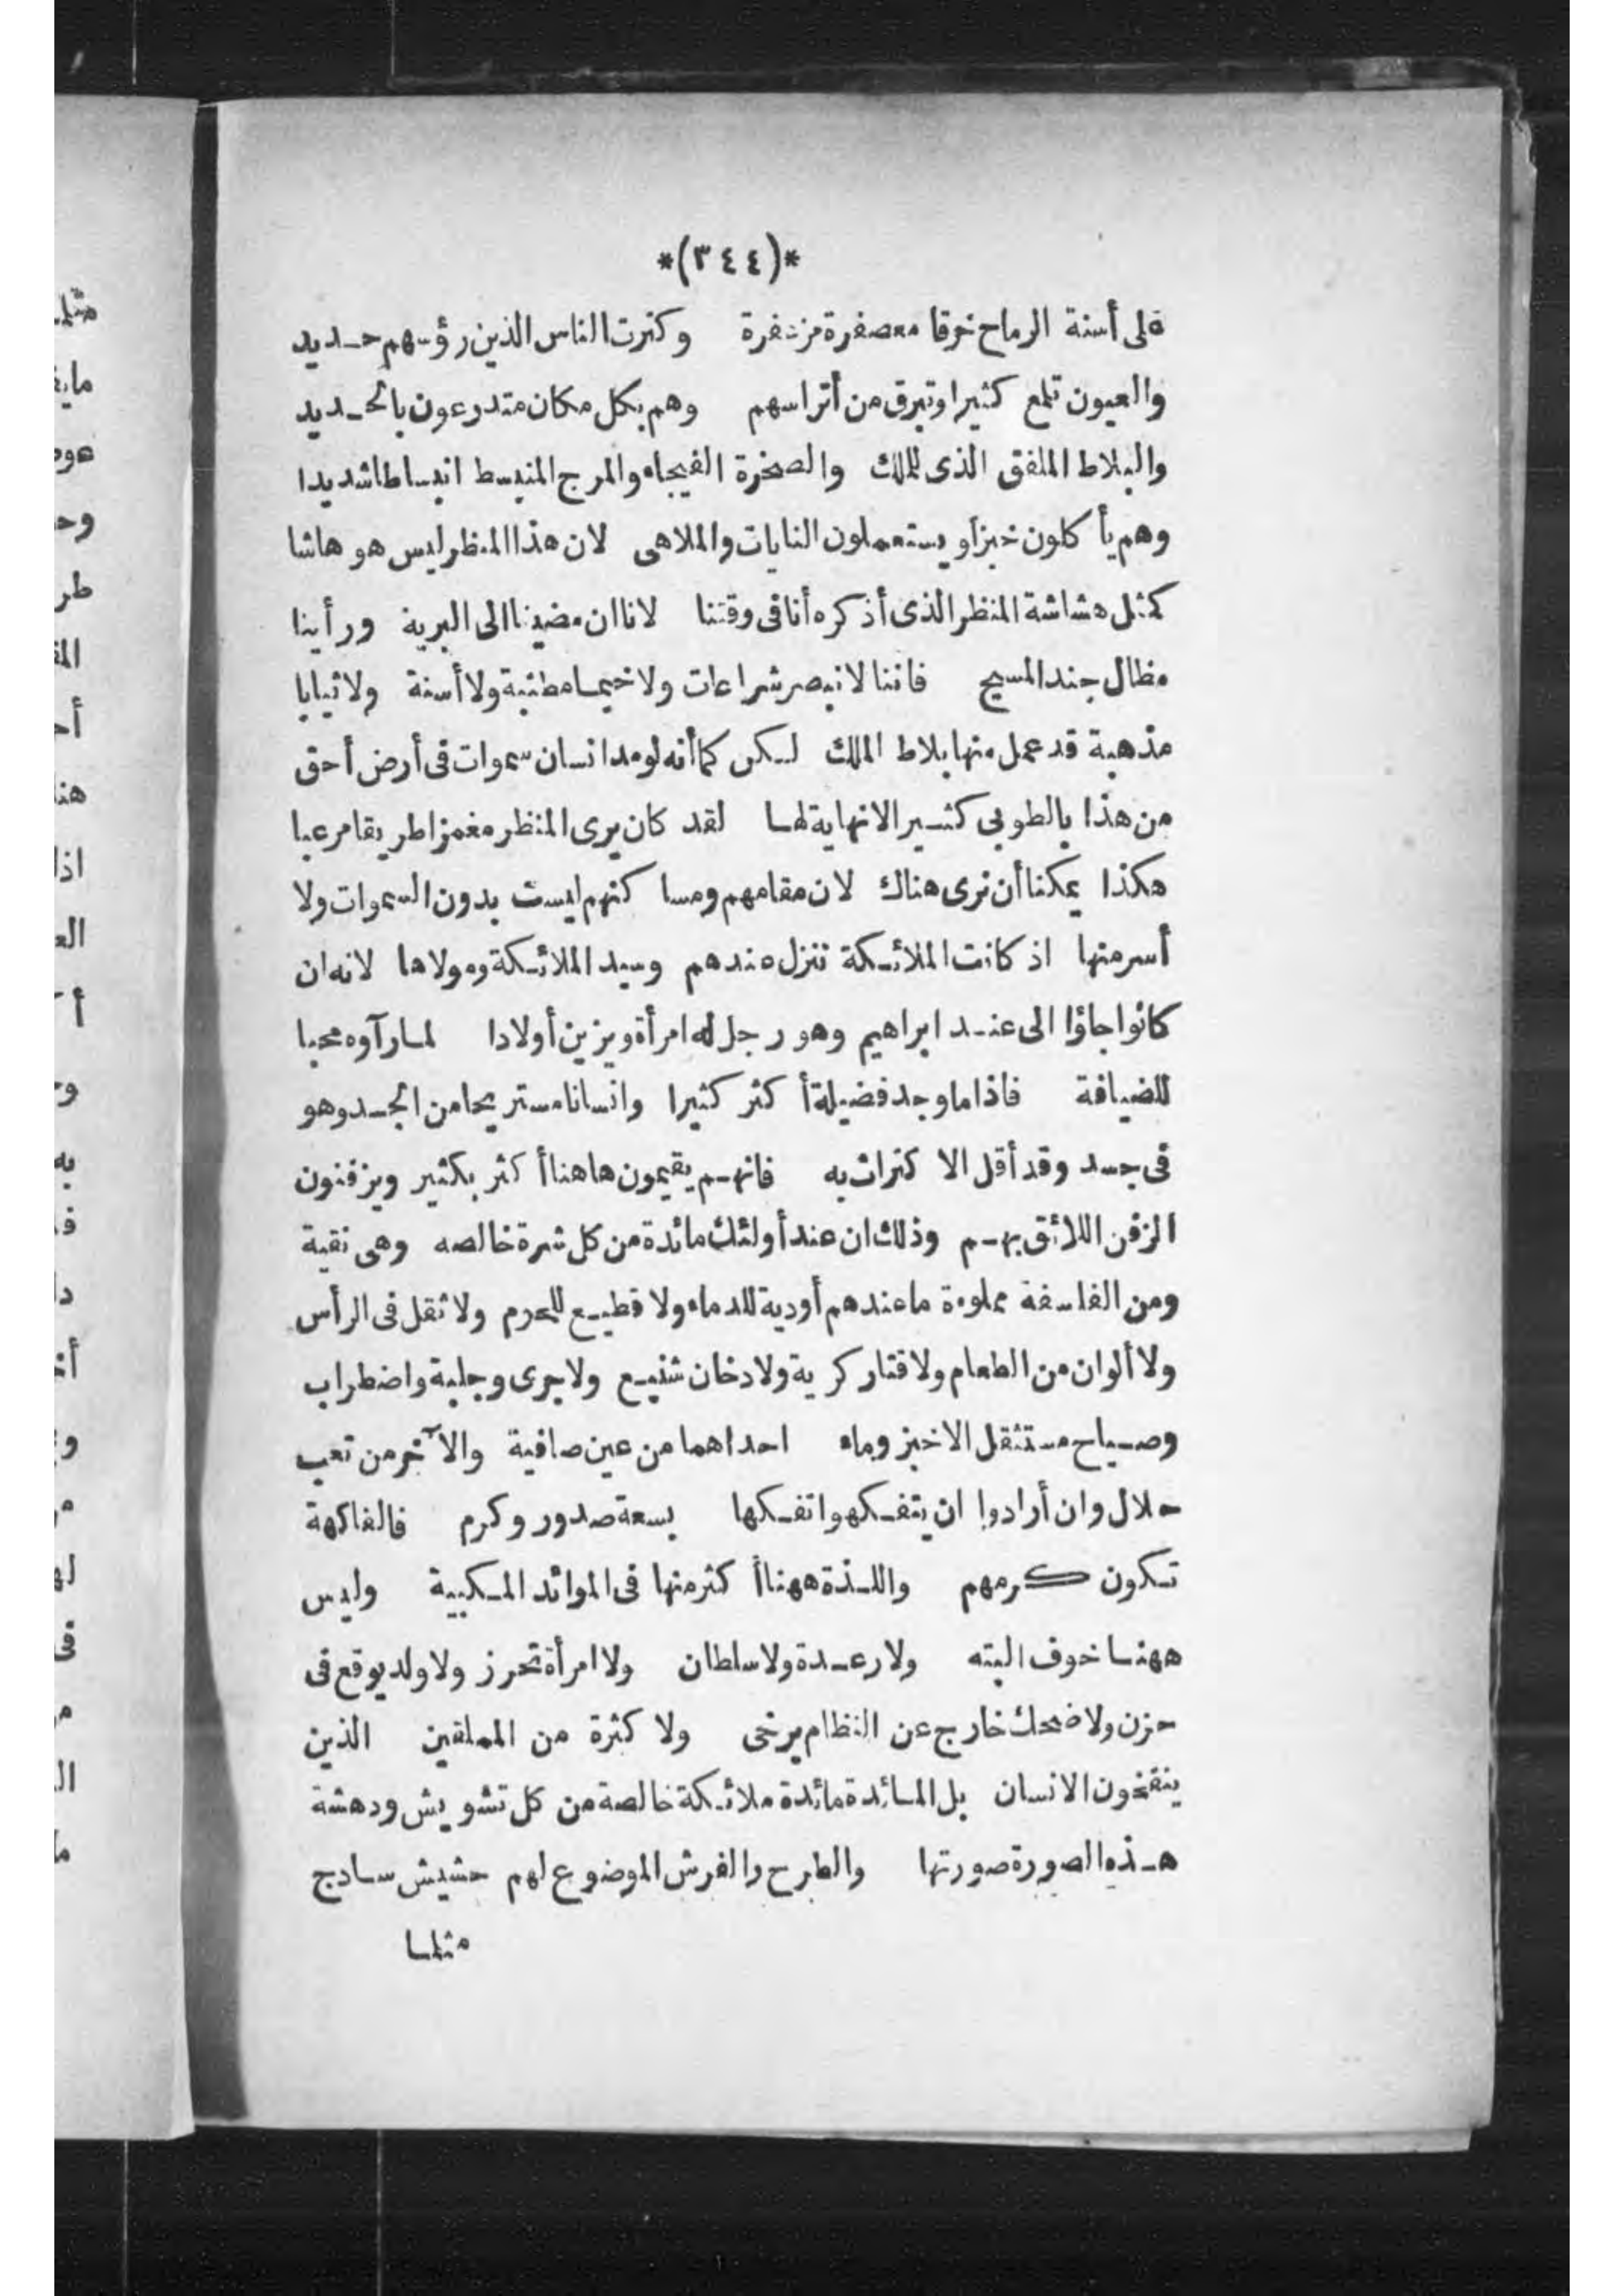 *(٣٤٤)*
على أسنة الرماح خرقا معصفرة مزعفرة وكثرت الناس الذين رؤسهم حديد
والعيون تلمع كثيرا وتبرق من أتراسهم وهم بكل مكان متدرعون بالحديد
والبلاط الملفق الذى للملك والصخرة الفيحاء والمرج المنبسط انبساطا شديدا
وهم يأكلون خبزا ويستعملون النايات والملاهى لان هذا المنظر ليس هو هاشا
كمثل هشاشة المنظر الذى أذكره أنا فى وقتنا لانا ان مضينا الى البرية ورأينا
مظال جند المسيح فاننا لا نبصر شراعات ولا خيما مطنبة ولا أسنة ولا ثيابا
مذهبة قد عمل منها بلاط الملك لكن كما أنه لو مد انسان سموات فى أرض أحق
من هذا بالطوبى كثيرا لانهاية لها لقد كان يرى المنظر مغمزا طريقا مرعبا
هكذا يمكننا أن نرى هناك لان مقامهم ومساكنهم ليست بدون السموات ولا
أسر منها اذ كانت الملائكة تنزل عندهم وسيد الملائكة ومولاها لانه ان
كانوا جاؤا الى عند ابراهيم وهو رجل له امرأة ويزين أولادا لما رآوه محبا
للضيافة فاذا ما وجد فضيلة أكثر كثيرا وانسانا مستريحا من الجسد وهو
فى جسد وقد أقل الاكتراث به فانهم يقيمون هاهنا أكثر بكثير ويزفنون
الزفن اللائق بهم وذلك ان عند أولئك مائدة من كل شرة خالصه وهى نقية
ومن الفلسفة مملوءة ما عندهم أودية للدماء ولا قطيع للحرم ولا ثقل فى الرأس
ولا ألوان من الطعام ولا قتار كرية ولا دخان شنيع ولا جرى وجلبة واضطراب
وصياح مستثقل الا خبز وماء احداهما من عين صافية والآخر من تعب
حلال وان أرادوا ان يتفكهوا تفكها بسعة صدور وكرم فالفاكهة
تكون كرمهم واللذة ههنا أكثر منها فى الموائد المكبية وليس
ههنا خوف البته ولا رعدة ولا سلطان ولا امرأة تحرز ولا ولد يوقع فى
حزن ولا ضحك خارج عن النظام يرخى ولا كثرة من الملقين الذين
ينفخون الانسان بل المائدة مائدة ملائكة خالصة من كل تشويش ودهشة
هذه الصورة صورتها والطرح والفرش الموضوع لهم حشيش سادج
مثلما